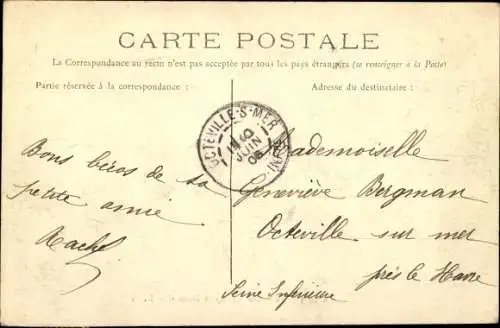 CARTE POSTALE
La Correspondance au recto n'est pas acceptée par tous les pays étrangers (se renseigner à la Poste)
Partie réservée à la correspondance :
Adresse du destinataire :
OCTEVILLE-S-MER
10
JUIN
08
Bons bécos de ta
petite amie
Rachel
Mademoiselle
Geneviève Bergman
Octeville sur mer
près le Havre
Seine Inférieure